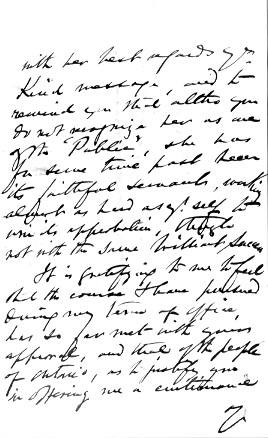 with her best regards yr
Kind message, and to
remind you that altho' you
do not recognize her as one
of the "Public", she has
for some time past been
its faithful servant, working
almost as hard as yr self to
win its approbation,
not with the same brilliant success
It is gratifying to me to feel
that the course I have pursued
during my term of office,
has so far met with your
approval, and that of the people
of Ontario, as to justify you
in offering me a continuance